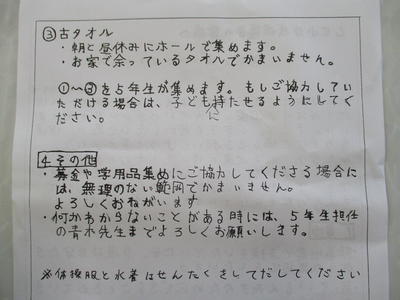 ③古タオル
・朝と昼休みにホールで集めます。
・お家で余っているタオルでかまいません。
①〜③を5年生が集めます。もしご協力してい
ただける場合は、子どもに持たせるようにしてく
ださい。
4.その他
・募金や学用品集めにご協力してくださる場合に
は、無理のない範囲でかまいません。
よろしくおねがいます
・何かわからないことがある時には、5年生担任
の青木先生までよろしくお願いします。
※体操服と水着はせんたくきしてだしてください